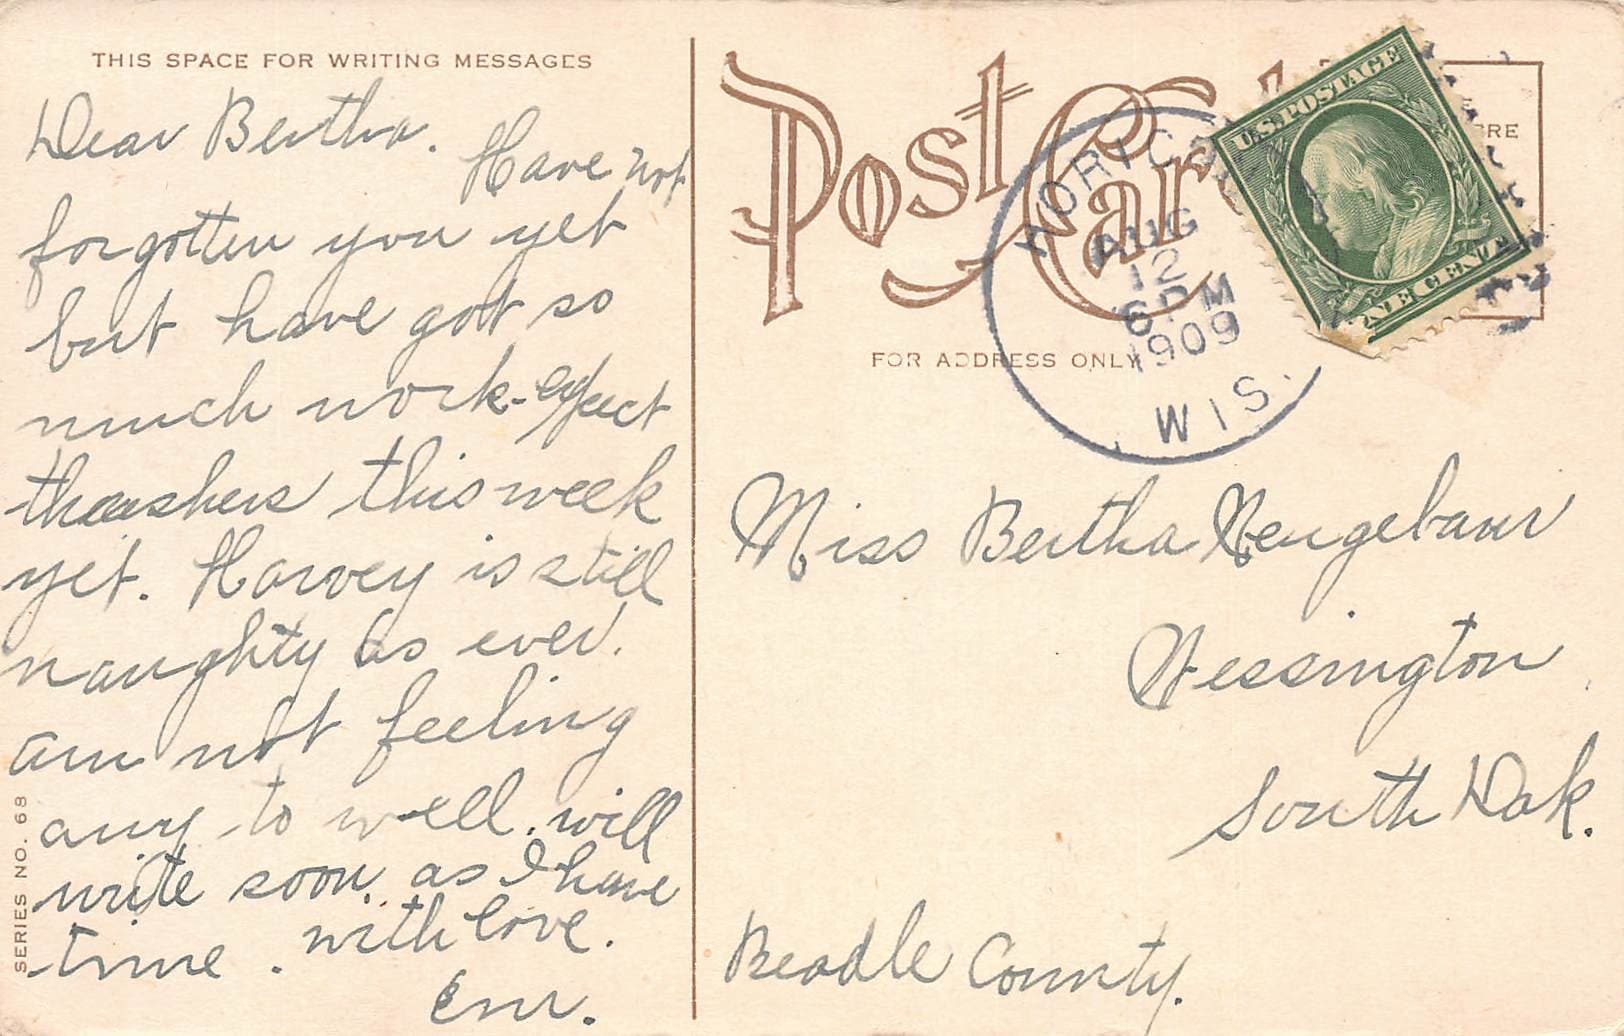 THIS SPACE FOR WRITING MESSAGES
Dear Bertha.
Have not
forgotten you yet
but have gott so
much work-expect
thrashers this week
yet. Harvey is still
naughty as ever.
am not feeling
any to well. will
write soon as I have
time. with love.
Em.
SERIES NO. 68
Post Car
U.S. POSTAGE
ONE CENT
HORICON
AUG
12
6 PM
1909
WIS.
FOR ADDRESS ONLY
Miss Bertha Neugebauer
Wessington
South Dak.
Beadle County.